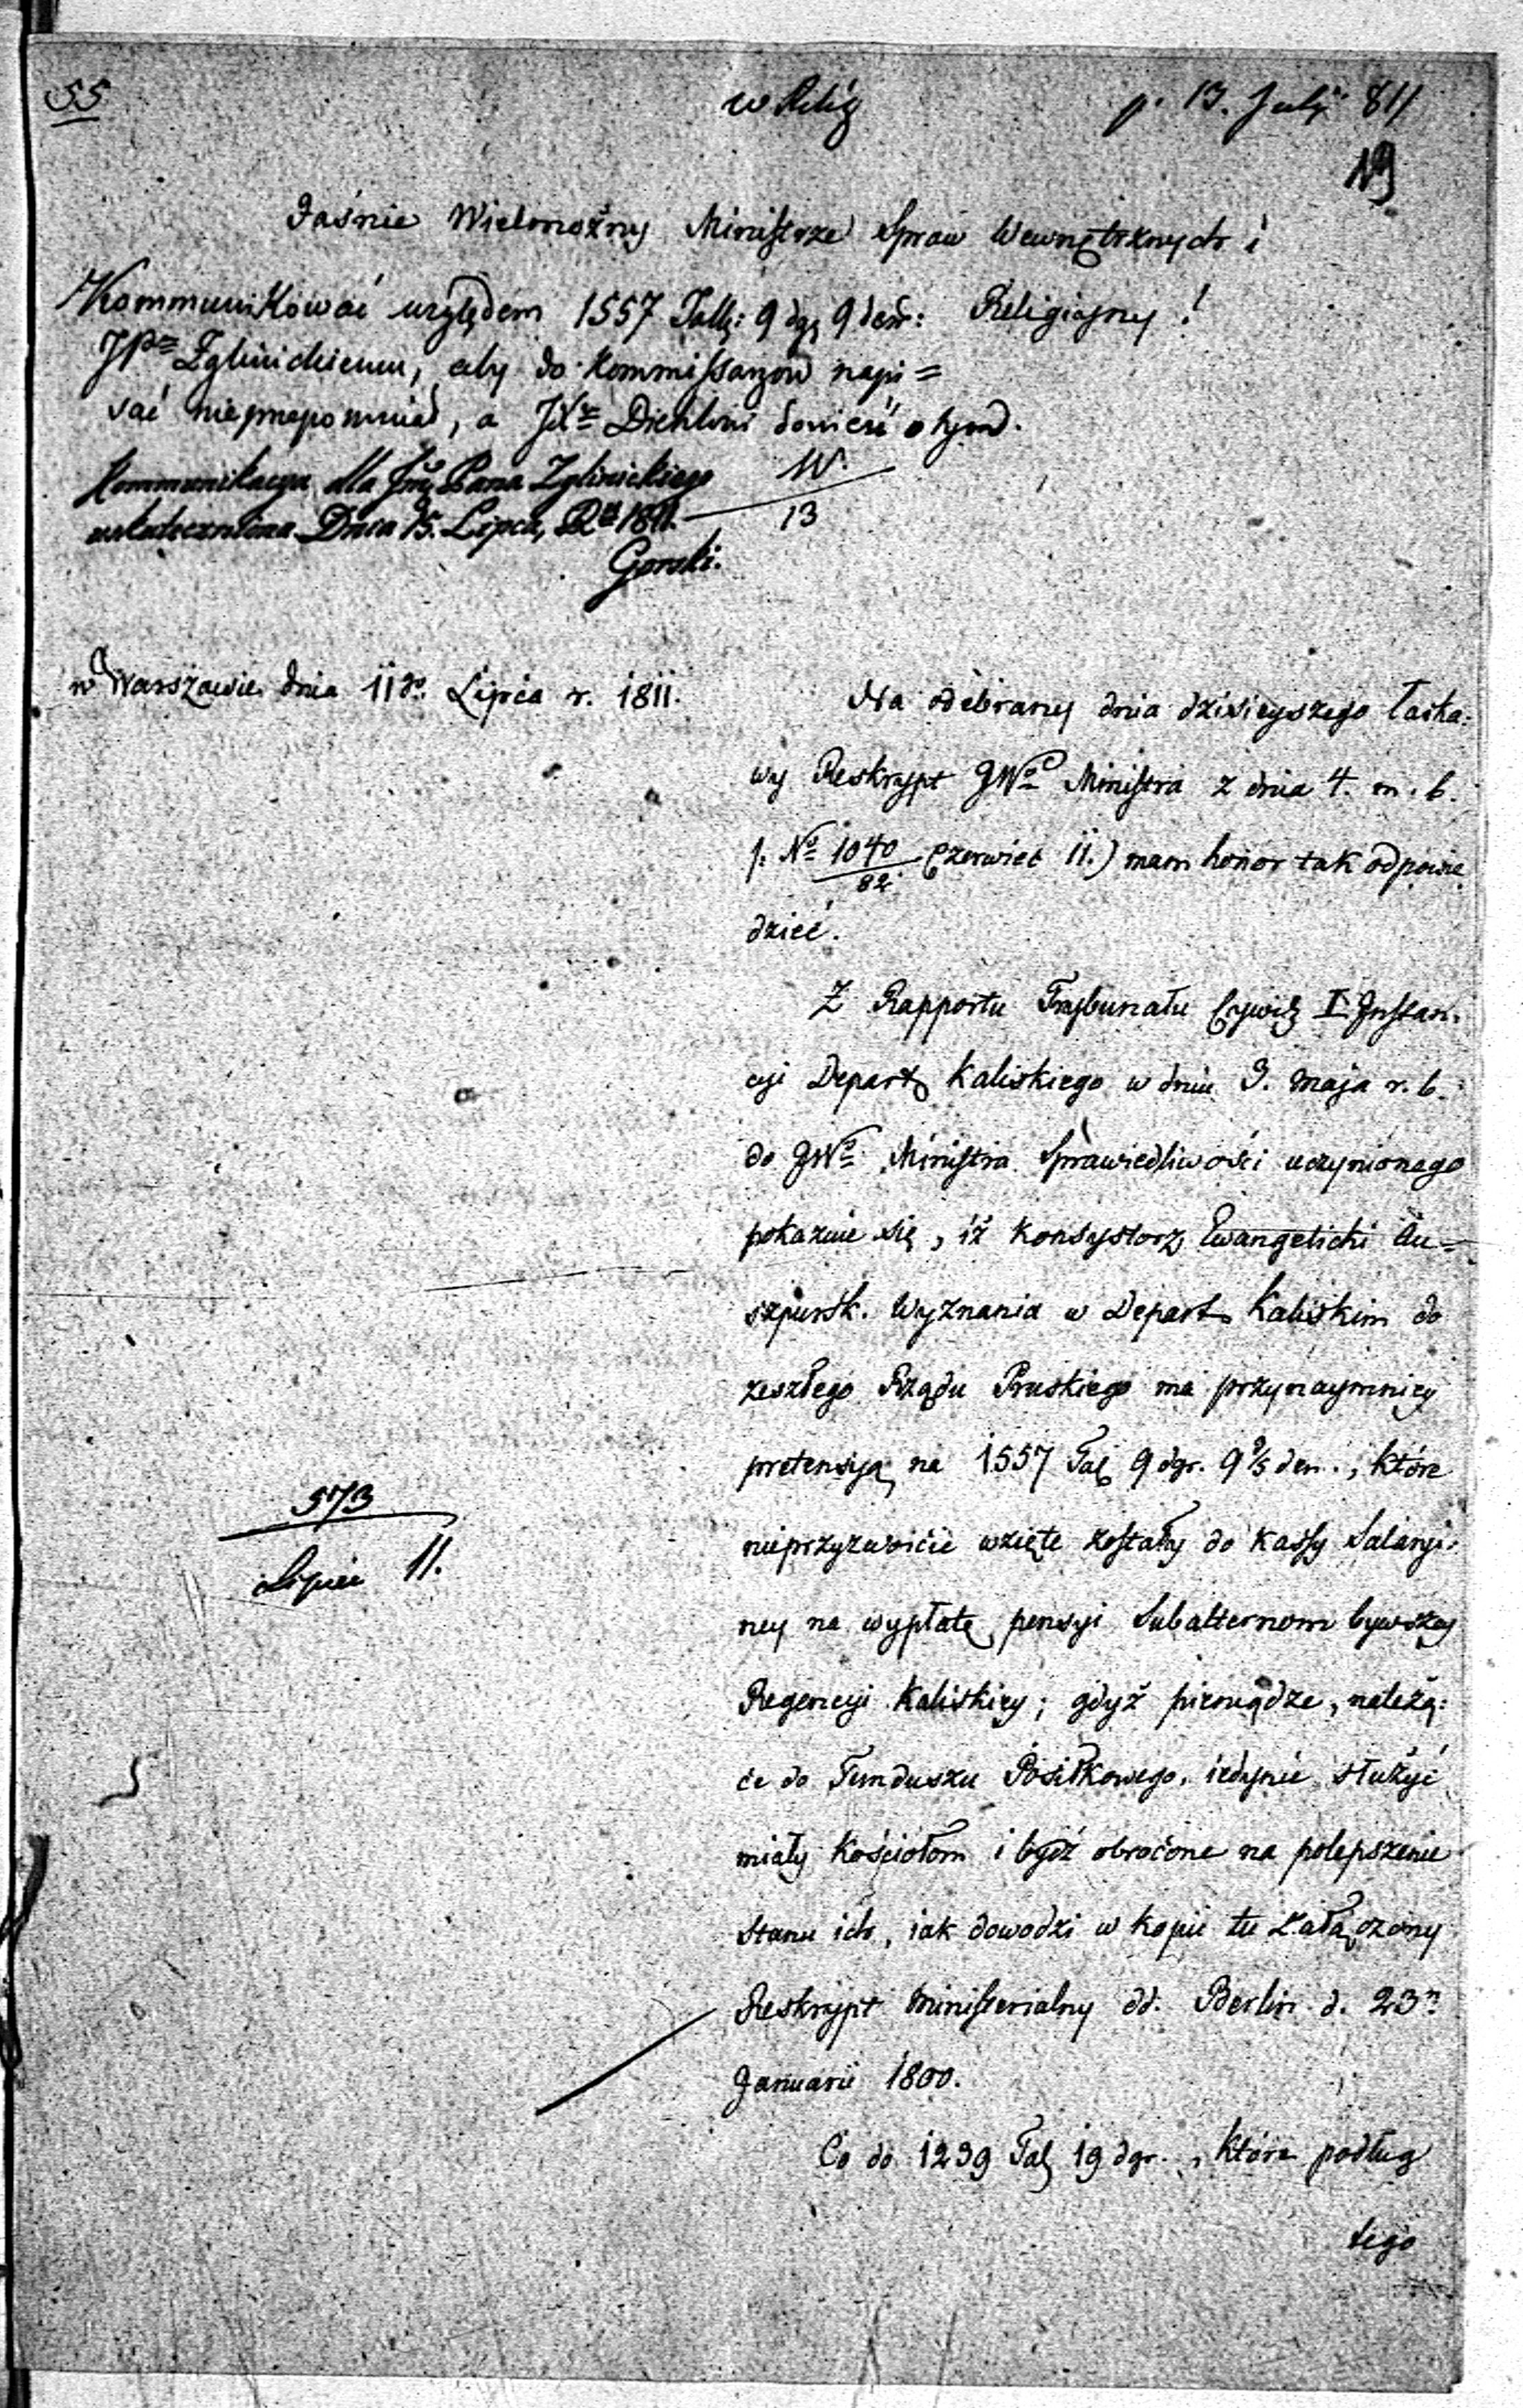 55
w Relig
p. 13. July 811
19
Jaśnie Wielmożny Ministrze Spraw Wewnętrznych i
Religijny!
Kommunikować względem 1557 Tall: 9 dgl 9 den:
JPu Zglinickiemu, aby do Kommissarzow napi=
sać nieprzepomniał, a JX Diehlowi donieść o tym.
W.
13
Kommunikacya dla Jmć Pana Zglinickiego
uskuteczniona Dnia 15. Lipca, R. 1811.
Gorski.
w Warszawie dnia 11go. Lipca r. 1811.
Na odebrany dnia dzisieyszego łaska:
wy Reskrypt JWo Ministra z dnia 4. m. b.
/: No 1040/82 Czerwiec 11.) mam honor tak odpowie
dzieć.
Z Rapportu Trybunału Cywil I Instan:
cyi Depart Kaliskiego w dniu 9. Maja r. b.
do JWo Ministra Sprawiedliwości uczynionego
pokazuie się, iż Konsystorz Ewangelicki Au=
szpursk. Wyznania w Depart Kaliskim do
zeszłego Rządu Pruskiego ma przynaymniey
pretensyą na 1557 Tal 9 dgr. 9 9/5 den., które
nieprzyzwoicie wzięte zostały do Kassy Salaryi:
ney na wypłatę pensyi Subalternom bywszey
Regencyi Kaliskiey; gdyż pieniądze, należą:
ce do Funduszu Posiłkowego, iedynie służyć
miały Kościołom i bydź obrócone na polepszenie
stanu ich, iak dowodzi w kopii tu załączony
Reskrypt Ministerialny dd. Berlin d. 23n
Januarii 1800.
Co do 1239 Tal 19 dgr., które podług
tego
573
Lipiec 11.